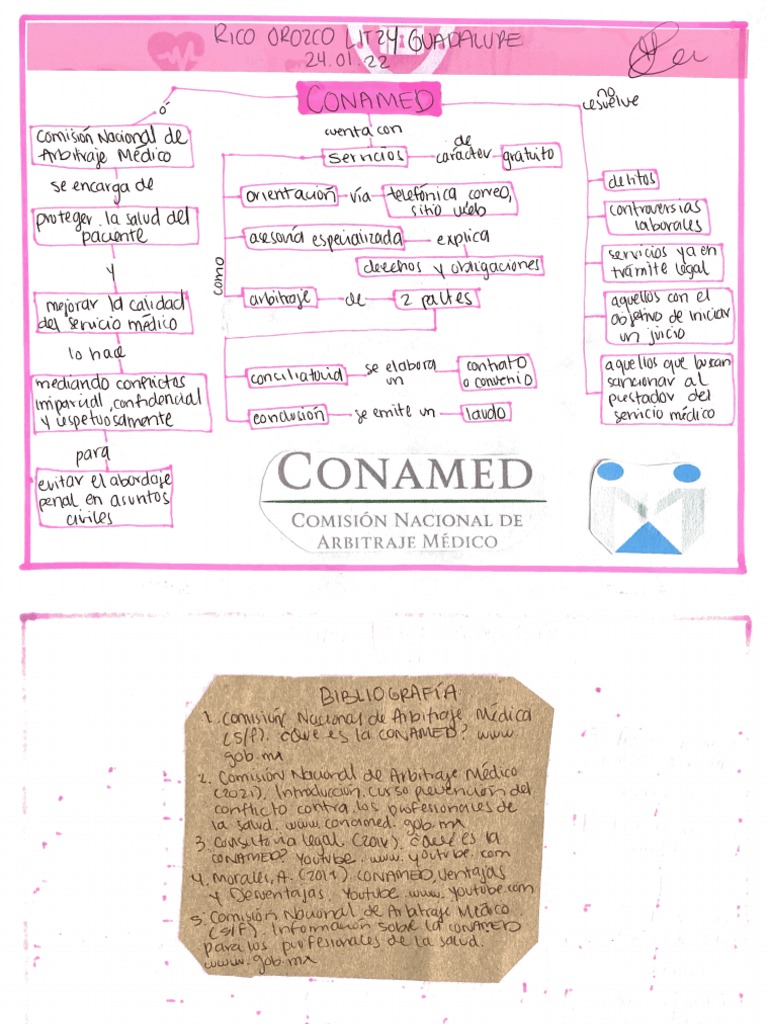 RICO OROZCO LITZY GUADALUPE
24.01.22
CONAMED
ó
Comisión Nacional de
Arbitraje Médico
se encarga de
proteger la salud del
paciente
y
mejorar la calidad
del servicio médico
lo hace
mediando conflictos
imparcial, confidencial
y respetuosamente
para
evitar el abordaje
penal en asuntos
civiles
cuenta con
servicios
de
caracter
gratuito
como
orientación
vía
telefónica correo,
sitio web
asesoría especializada
explica
derechos y obligaciones
arbitraje
de
2 partes
conciliatoria
se elabora
un
contrato
o convenio
conclusión
se emite un
laudo
no
resuelve
delitos
controversias
laborales
servicios ya en
trámite legal
aquellos con el
objetivo de iniciar
un juicio
aquellos que buscan
sancionar al
prestador del
servicio médico
CONAMED
COMISIÓN NACIONAL DE
ARBITRAJE MÉDICO
BIBLIOGRAFÍA
1. Comisión Nacional de Arbitraje Médica
(S/f). ¿Que es la CONAMED? www.
gob.mx
2. Comisión Nacional de Arbitraje Médico
(2021). Introducción. curso prevención del
conflicto contra los profesionales de
la salud. www.conamed.gob.mx
3. Consultoria legal. ¿Qué es la
CONAMED? Youtube. www.youtube.com
4. Morales, A. CONAMED, Ventajas
y Desventajas. Youtube. www.youtube.com
5. Comisión Nacional de Arbitraje Médico.
(S/F). Información sobre la CONAMED
para los profesionales de la salud.
www.gob.mx